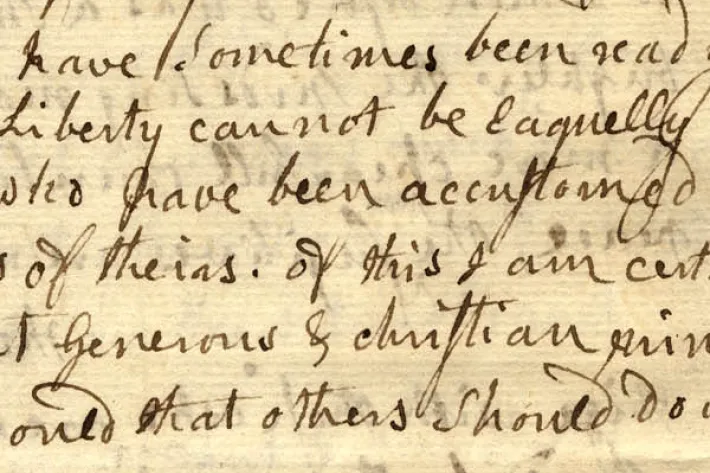 have sometimes been ready
Liberty cannot be Eaquelly
who have been accustomed
s of theirs. of this I am cert
t Generous & christian prin
ould that others should do